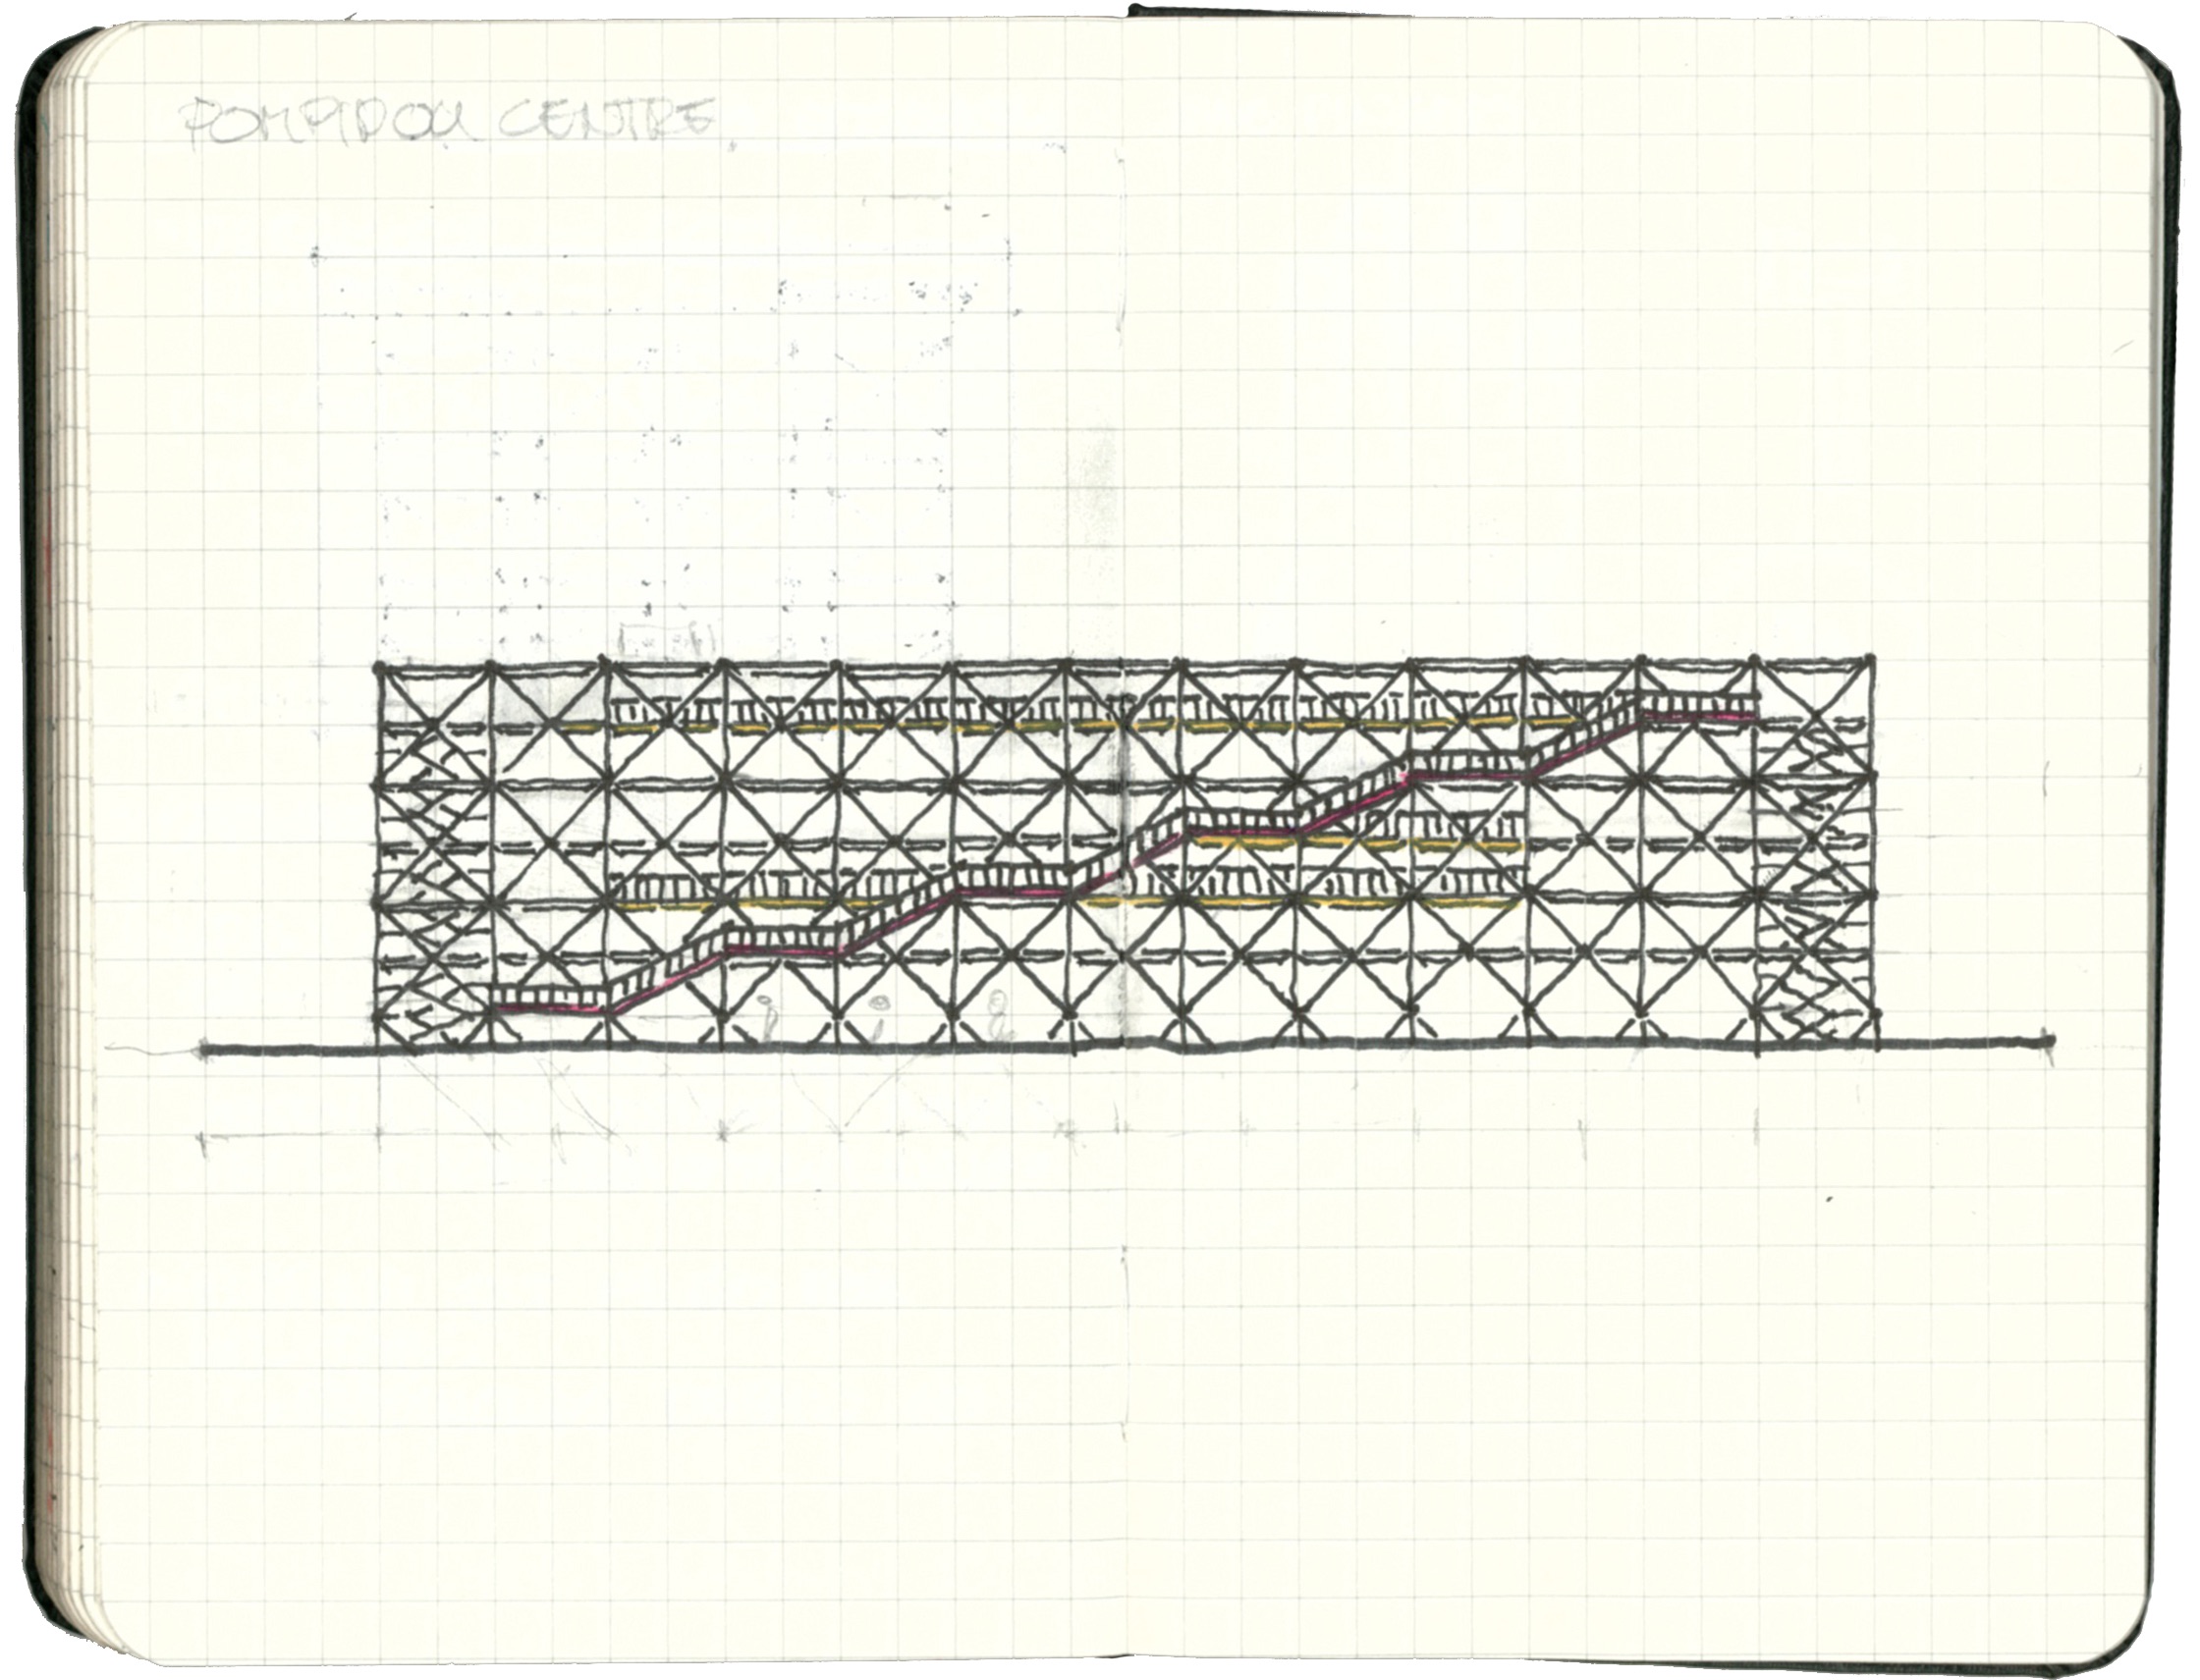 POMPIDOU CENTRE